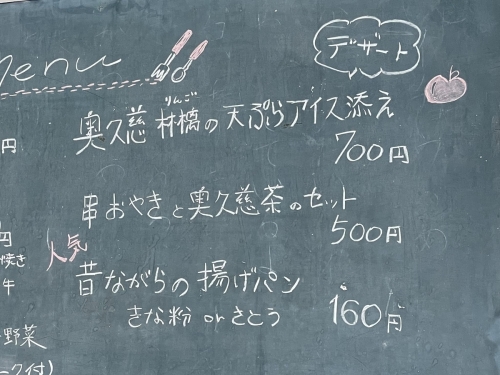 Menu
デザート
りんご
奥久慈林檎の天ぷらアイス添え
700円
串おやきと奥久慈茶のセット
500円
人気
昔ながらの揚げパン
きな粉 or さとう
160円
円
円
焼き
牛
野菜
ーク付)